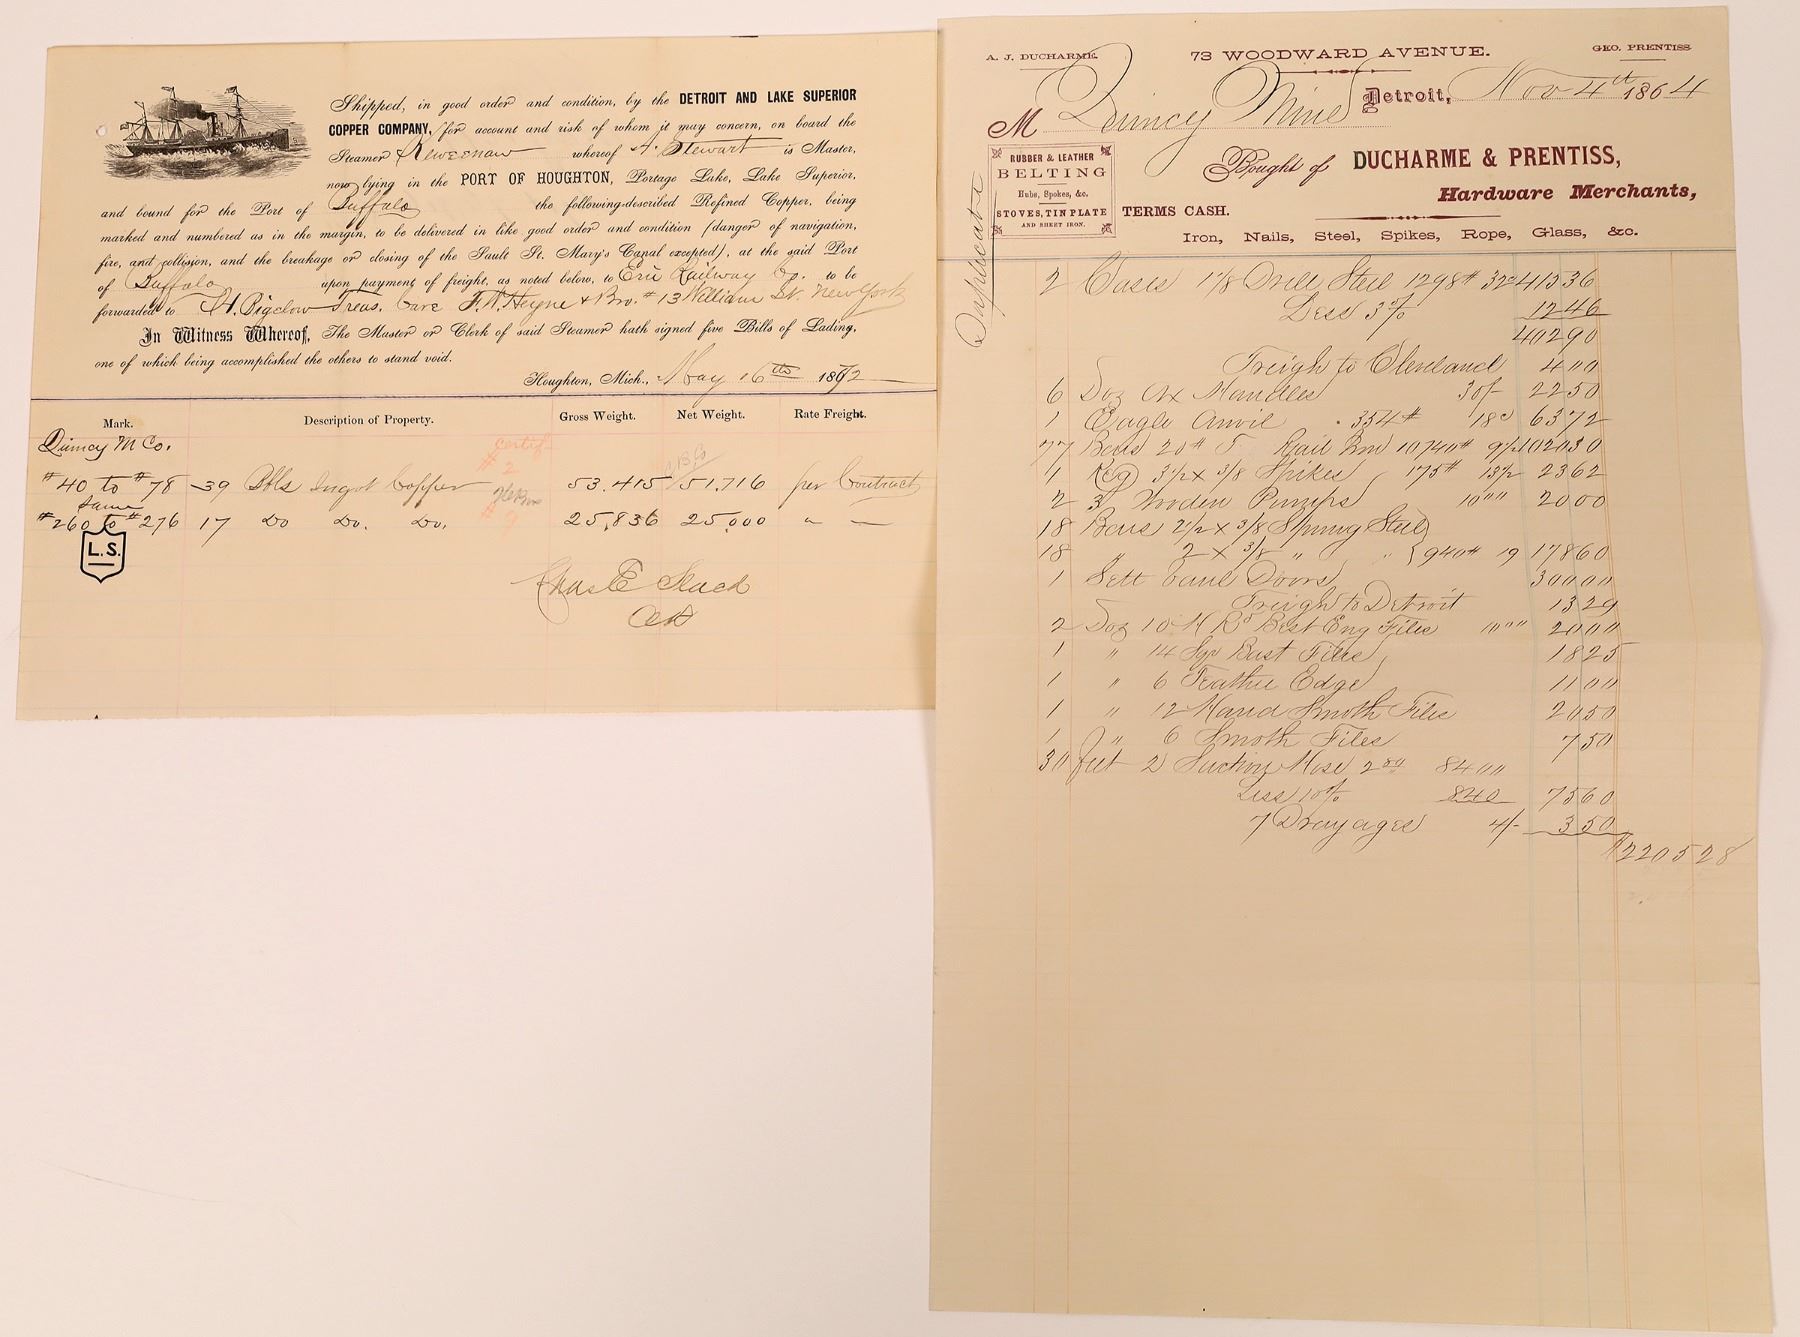 Shipped, in good order and condition, by the DETROIT AND LAKE SUPERIOR
COPPER COMPANY, for account and risk of whom it may concern, on board the
Steamer Keweenaw whereof A. Stewart is Master,
now lying in the PORT OF HOUGHTON, Portage Lake, Lake Superior,
and bound for the Port of Buffalo the following-described Refined Copper, being
marked and numbered as in the margin, to be delivered in like good order and condition (danger of navigation,
fire, and collision, and the breakage or closing of the Sault St. Mary's Canal excepted), at the said Port
of Buffalo upon payment of freight, as noted below, to Erie Railway Co. to be
forwarded to H. Bigelow Treas. Care F. W. Heyne & Bro. # 13 William St. New York
In Witness Whereof, The Master or Clerk of said Steamer hath signed five Bills of Lading,
one of which being accomplished the others to stand void.
Houghton, Mich., May 16th 1872
Mark. Description of Property. Gross Weight. Net Weight. Rate Freight.
Quincy M Co.
certif
# 2
#40 to #78 39 Bbls Ingot Copper 53.415 51,716 per Contract
same
# 9
#260 to #276 17 Do Do. Do. 25,836 25,000 " —
L.S.
Chas E Slack
Clk
A. J. DUCHARME. 73 WOODWARD AVENUE. GEO. PRENTISS
Detroit, Nov 4th 1864
M Quincy Mine
Bought of DUCHARME & PRENTISS,
Hardware Merchants,
RUBBER & LEATHER
BELTING
Hubs, Spokes, &c.
STOVES, TIN PLATE
AND SHEET IRON.
TERMS CASH.
Iron, Nails, Steel, Spikes, Rope, Glass, &c.
Duplicate
2 Cases 1 1/8 Drill Steel 1298# 32c 415 36
Less 3% 12 46
402 90
Freigh to Cleveland 4 00
6 Doz Ax Handles 30/- 22 50
1 Eagle Anvil 354# 18c 63 72
77 Bars 20# T Rail Iron 10740# 9 1/2 1020 30
1 Keg 3 1/2 x 3/8 Spikes 175# 13 1/2 23 62
2 3 Wooden Pumps 10 00 20 00
18 Bars 2 1/2 x 3/8 Spring Steel
18 " 2 x 3/8 " " 940# 19 178 60
1 Sett Vault Doors 300 00
Freigh to Detroit 13 29
2 Doz 10 H Rd Bast Eng Files 10 00 20 00
1 " 14 Sqr Bast Files 18 25
1 " 6 Feather Edge 11 00
1 " 12 Hand Smoth Files 20 50
1 " 6 Smoth Files 7 50
30 feet 2 Suction Hose 2 80 84 00
Less 10% 8 40 75 60
7 Drayages 4/- 3 50
$2205 28